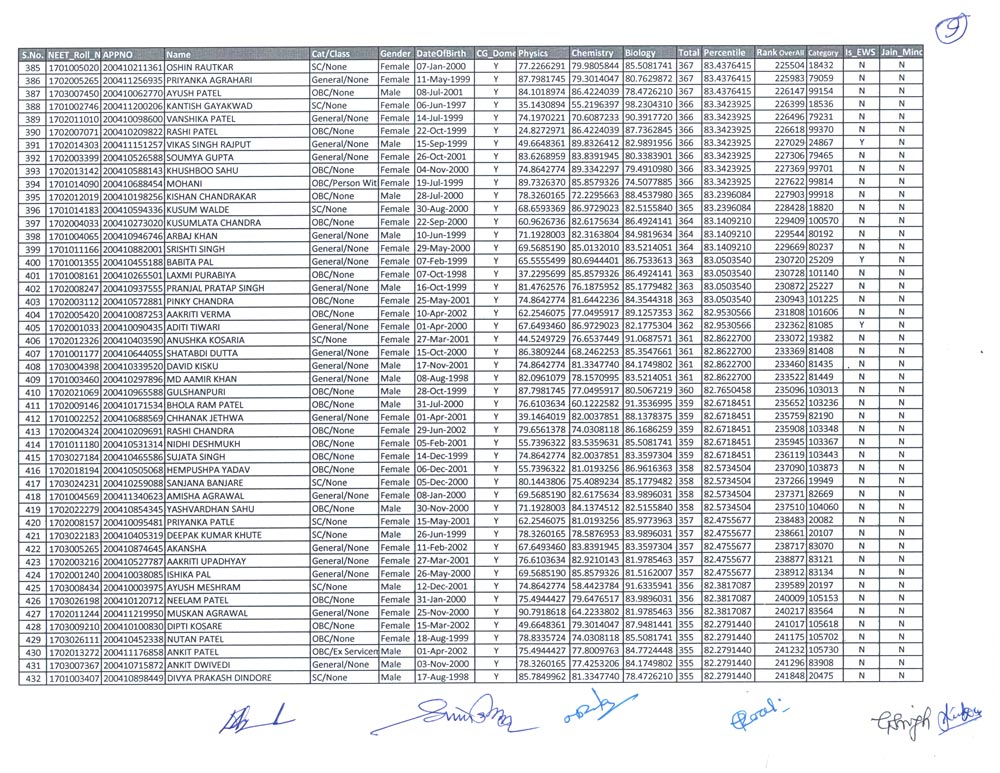 9
S.No. NEET_Roll_N APPNO Name Cat/Class Gender DateOfBirth CG_Dome Physics Chemistry Biology Total Percentile Rank OverAll Category Is_EWS Jain_Minc
385 1701005020 200410211361 OSHIN RAUTKAR SC/None Female 07-Jan-2000 Y 77.2266291 79.9805844 85.5081741 367 83.4376415 225504 18432 N N
386 1702005265 200411256935 PRIYANKA AGRAHARI General/None Female 11-May-1999 Y 87.7981745 79.3014047 80.7629872 367 83.4376415 225983 79059 N N
387 1703007450 200410062770 AYUSH PATEL OBC/None Male 08-Jul-2001 Y 84.1018974 86.4224039 78.4726210 367 83.4376415 226147 99154 N N
388 1701002746 200411200206 KANTISH GAYAKWAD SC/None Female 06-Jun-1997 Y 35.1430894 55.2196397 98.2304310 366 83.3423925 226399 18536 N N
389 1702011010 200410098600 VANSHIKA PATEL General/None Female 14-Jul-1999 Y 74.1970221 70.6087233 90.3917720 366 83.3423925 226496 79231 N N
390 1702007071 200410209822 RASHI PATEL OBC/None Female 22-Oct-1999 Y 24.8272971 86.4224039 87.7362845 366 83.3423925 226618 99370 N N
391 1702014303 200411151257 VIKAS SINGH RAJPUT General/None Male 15-Sep-1999 Y 49.6648361 89.8326412 82.9891956 366 83.3423925 227029 24867 Y N
392 1702003399 200410526588 SOUMYA GUPTA General/None Female 26-Oct-2001 Y 83.6268959 83.8391945 80.3383901 366 83.3423925 227306 79465 N N
393 1702013142 200410588143 KHUSHBOO SAHU OBC/None Female 04-Nov-2000 Y 74.8642774 89.3342297 79.4910980 366 83.3423925 227369 99701 N N
394 1701014090 200410688454 MOHANI OBC/Person Wit Female 19-Jul-1999 Y 89.7326370 85.8579326 74.5077885 366 83.3423925 227622 99814 N N
395 1702012019 200410198256 KISHAN CHANDRAKAR OBC/None Male 28-Jul-2000 Y 78.3260165 72.2295663 88.4537980 365 83.2396084 227903 99918 N N
396 1701014183 200410594336 KUSUM WALDE SC/None Female 30-Aug-2000 Y 68.6593369 86.9729023 82.5155840 365 83.2396084 228428 18820 N N
397 1702004033 200410273020 KUSUMLATA CHANDRA OBC/None Female 22-Sep-2000 Y 60.9626736 82.6175634 86.4924141 364 83.1409210 229409 100570 N N
398 1701004065 200410946746 ARBAJ KHAN General/None Male 10-Jun-1999 Y 71.1928003 82.3163804 84.9819634 364 83.1409210 229544 80192 N N
399 1701011166 200410882001 SRISHTI SINGH General/None Female 29-May-2000 Y 69.5685190 85.0132010 83.5214051 364 83.1409210 229669 80237 N N
400 1701001355 200410455188 BABITA PAL General/None Female 07-Feb-1999 Y 65.5555499 80.6944401 86.7533613 363 83.0503540 230720 25209 Y N
401 1701008161 200410265501 LAXMI PURABIYA OBC/None Female 07-Oct-1998 Y 37.2295699 85.8579326 86.4924141 363 83.0503540 230728 101140 N N
402 1702008247 200410937555 PRANJAL PRATAP SINGH General/None Male 16-Oct-1999 Y 81.4762576 76.1875952 85.1779482 363 83.0503540 230872 25227 N N
403 1702003112 200410572881 PINKY CHANDRA OBC/None Female 25-May-2001 Y 74.8642774 81.6442236 84.3544318 363 83.0503540 230943 101225 N N
404 1702005420 200410087253 AAKRITI VERMA OBC/None Female 10-Apr-2002 Y 62.2546075 77.0495917 89.1257353 362 82.9530566 231808 101606 N N
405 1702001033 200410090435 ADITI TIWARI General/None Female 01-Apr-2000 Y 67.6493460 86.9729023 82.1775304 362 82.9530566 232362 81085 Y N
406 1702012326 200410403590 ANUSHKA KOSARIA SC/None Female 27-Mar-2001 Y 44.5249729 76.6537449 91.0687571 361 82.8622700 233072 19382 N N
407 1701001177 200410644055 SHATABDI DUTTA General/None Female 15-Oct-2000 Y 86.3809244 68.2462253 85.3547661 361 82.8622700 233369 81408 N N
408 1703004398 200410339520 DAVID KISKU General/None Male 17-Nov-2001 Y 74.8642774 81.3347740 84.1749802 361 82.8622700 233460 81435 N N
409 1701003460 200410297896 MD AAMIR KHAN General/None Male 08-Aug-1998 Y 82.0961079 78.1570995 83.5214051 361 82.8622700 233522 81449 N N
410 1702021069 200410965588 GULSHANPURI OBC/None Male 28-Oct-1999 Y 87.7981745 77.0495917 80.5067219 360 82.7650458 235096 103013 N N
411 1702009146 200410171534 BHOLA RAM PATEL OBC/None Male 31-Jul-2000 Y 76.6103634 60.1222582 91.3535995 359 82.6718451 235652 103236 N N
412 1701002252 200410688569 CHHANAK JETHWA General/None Female 01-Apr-2001 Y 39.1464019 82.0037851 88.1378375 359 82.6718451 235759 82190 N N
413 1702004324 200410209691 RASHI CHANDRA OBC/None Female 29-Jun-2002 Y 79.6561378 74.0308118 86.1686259 359 82.6718451 235908 103348 N N
414 1701011180 200410531314 NIDHI DESHMUKH OBC/None Female 05-Feb-2001 Y 55.7396322 83.5359631 85.5081741 359 82.6718451 235945 103367 N N
415 1703027184 200410465586 SUJATA SINGH OBC/None Female 14-Dec-1999 Y 74.8642774 82.0037851 83.3597304 359 82.6718451 236119 103443 N N
416 1702018194 200410505068 HEMPUSHPA YADAV OBC/None Female 06-Dec-2001 Y 55.7396322 81.0193256 86.9616363 358 82.5734504 237090 103873 N N
417 1703024231 200410259088 SANJANA BANJARE SC/None Female 05-Dec-2000 Y 80.1443806 75.4089234 85.1779482 358 82.5734504 237266 19949 N N
418 1701004569 200411340623 AMISHA AGRAWAL General/None Female 08-Jan-2000 Y 69.5685190 82.6175634 83.9896031 358 82.5734504 237371 82669 N N
419 1702022279 200410854345 YASHVARDHAN SAHU OBC/None Male 30-Nov-2000 Y 71.1928003 84.1374512 82.5155840 358 82.5734504 237510 104060 N N
420 1702008157 200410095481 PRIYANKA PATLE SC/None Female 15-May-2001 Y 62.2546075 81.0193256 85.9773963 357 82.4755677 238483 20082 N N
421 1703022183 200410405319 DEEPAK KUMAR KHUTE SC/None Male 26-Jun-1999 Y 78.3260165 78.5876953 83.9896031 357 82.4755677 238661 20107 N N
422 1703005265 200410874645 AKANSHA General/None Female 11-Feb-2002 Y 67.6493460 83.8391945 83.3597304 357 82.4755677 238717 83070 N N
423 1702003216 200410527787 AAKRITI UPADHYAY General/None Female 27-Mar-2001 Y 76.6103634 82.9210143 81.9785463 357 82.4755677 238877 83121 N N
424 1702001240 200410038085 ISHIKA PAL General/None Female 26-May-2000 Y 69.5685190 85.8579326 81.5162007 357 82.4755677 238912 83134 N N
425 1703008434 200410003975 AYUSH MESHRAM SC/None Male 12-Dec-2001 Y 74.8642774 58.4423784 91.6335941 356 82.3817087 239589 20197 N N
426 1703026198 200410120712 NEELAM PATEL OBC/None Female 31-Jan-2000 Y 75.4944427 79.6476517 83.9896031 356 82.3817087 240009 105153 N N
427 1702011244 200411219950 MUSKAN AGRAWAL General/None Female 25-Nov-2000 Y 90.7918618 64.2233802 81.9785463 356 82.3817087 240217 83564 N N
428 1703009210 200410100830 DIPTI KOSARE OBC/None Female 15-Mar-2002 Y 49.6648361 79.3014047 87.9481441 355 82.2791440 241017 105618 N N
429 1703026111 200410452338 NUTAN PATEL OBC/None Female 18-Aug-1999 Y 78.8335724 74.0308118 85.5081741 355 82.2791440 241175 105702 N N
430 1702013272 200411176858 ANKIT PATEL OBC/Ex Servicen Male 01-Apr-2002 Y 75.4944427 77.8009763 84.7724448 355 82.2791440 241232 105730 N N
431 1703007367 200410715872 ANKIT DWIVEDI General/None Male 03-Nov-2000 Y 78.3260165 77.4253206 84.1749802 355 82.2791440 241296 83908 N N
432 1701003407 200410898449 DIVYA PRAKASH DINDORE SC/None Male 17-Aug-1998 Y 85.7849962 81.3347740 78.4726210 355 82.2791440 241848 20475 N N